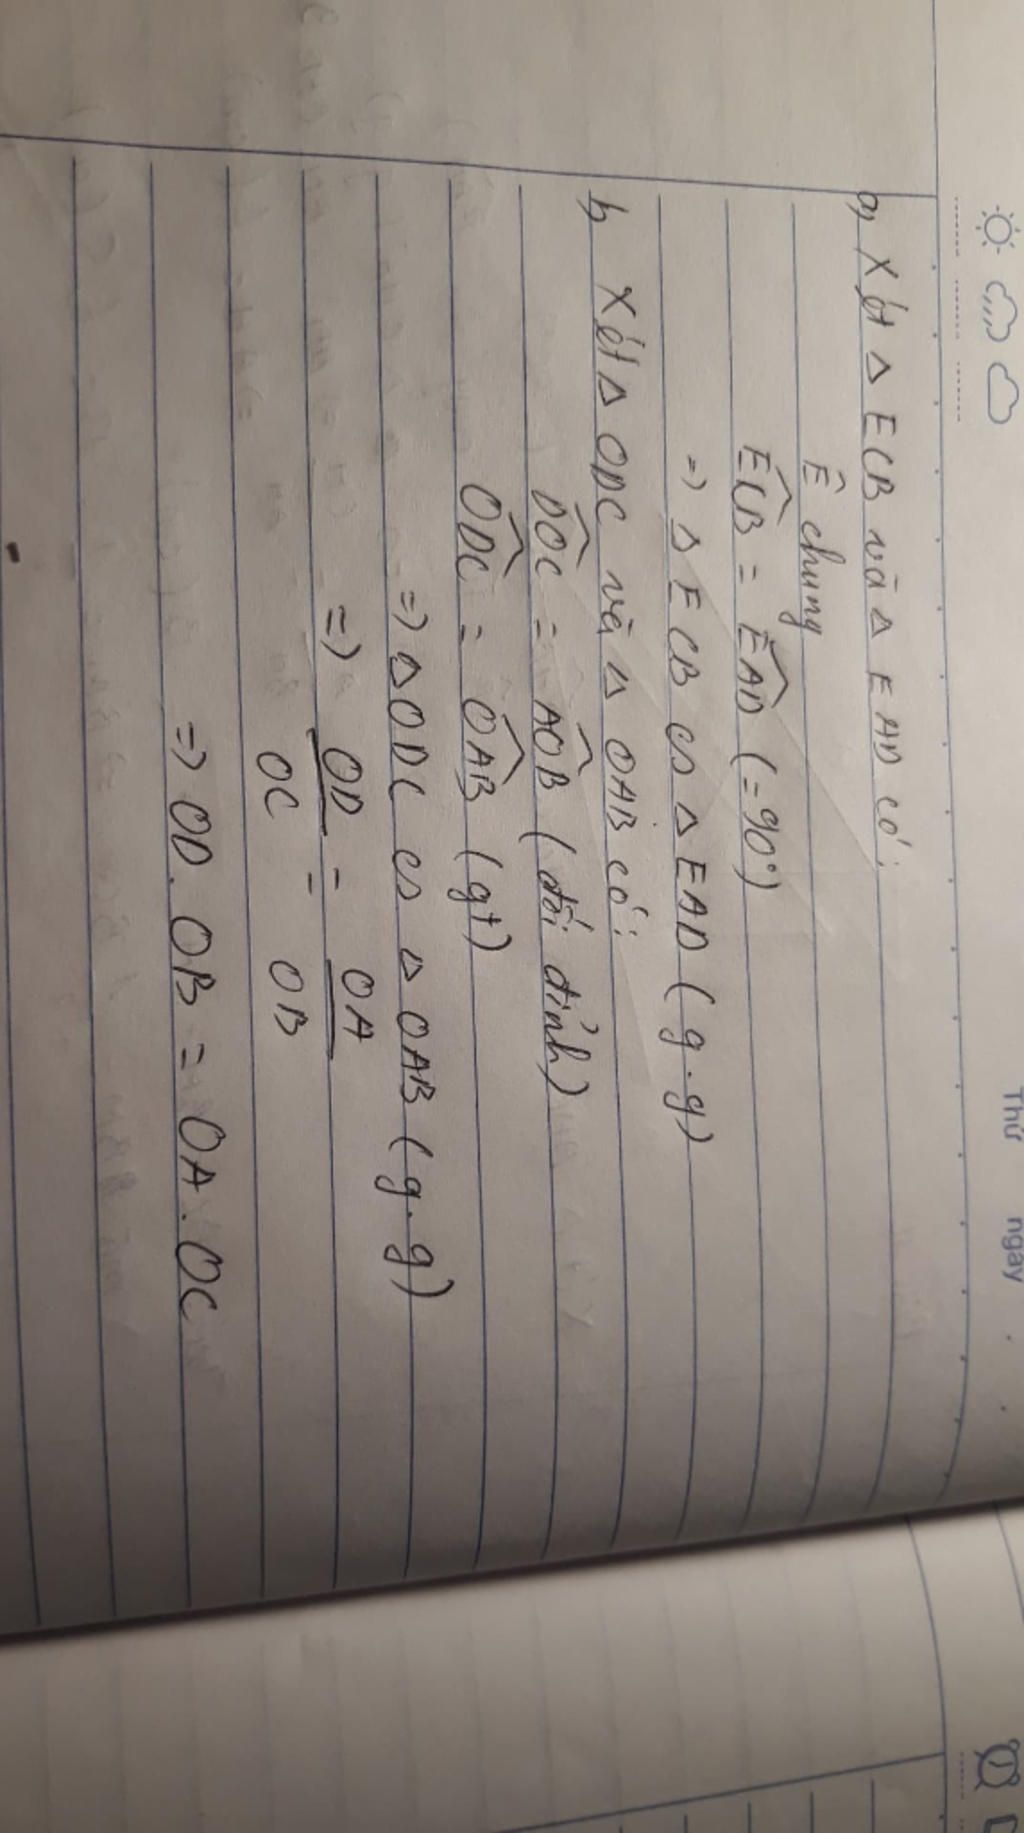 Thứ ngày
a, Xét △ ECB và △ EAD có:
Ê chung
ECB^ = EAD^ (= 90°)
=> △ ECB ∽ △ EAD (g.g)
b, Xét △ ODC và △ OAB có:
DOC^ = AOB^ (đối đỉnh)
ODC^ = OAB^ (gt)
=> △ ODC ∽ △ OAB (g.g)
=> OD/OC = OA/OB
=> OD. OB = OA. OC